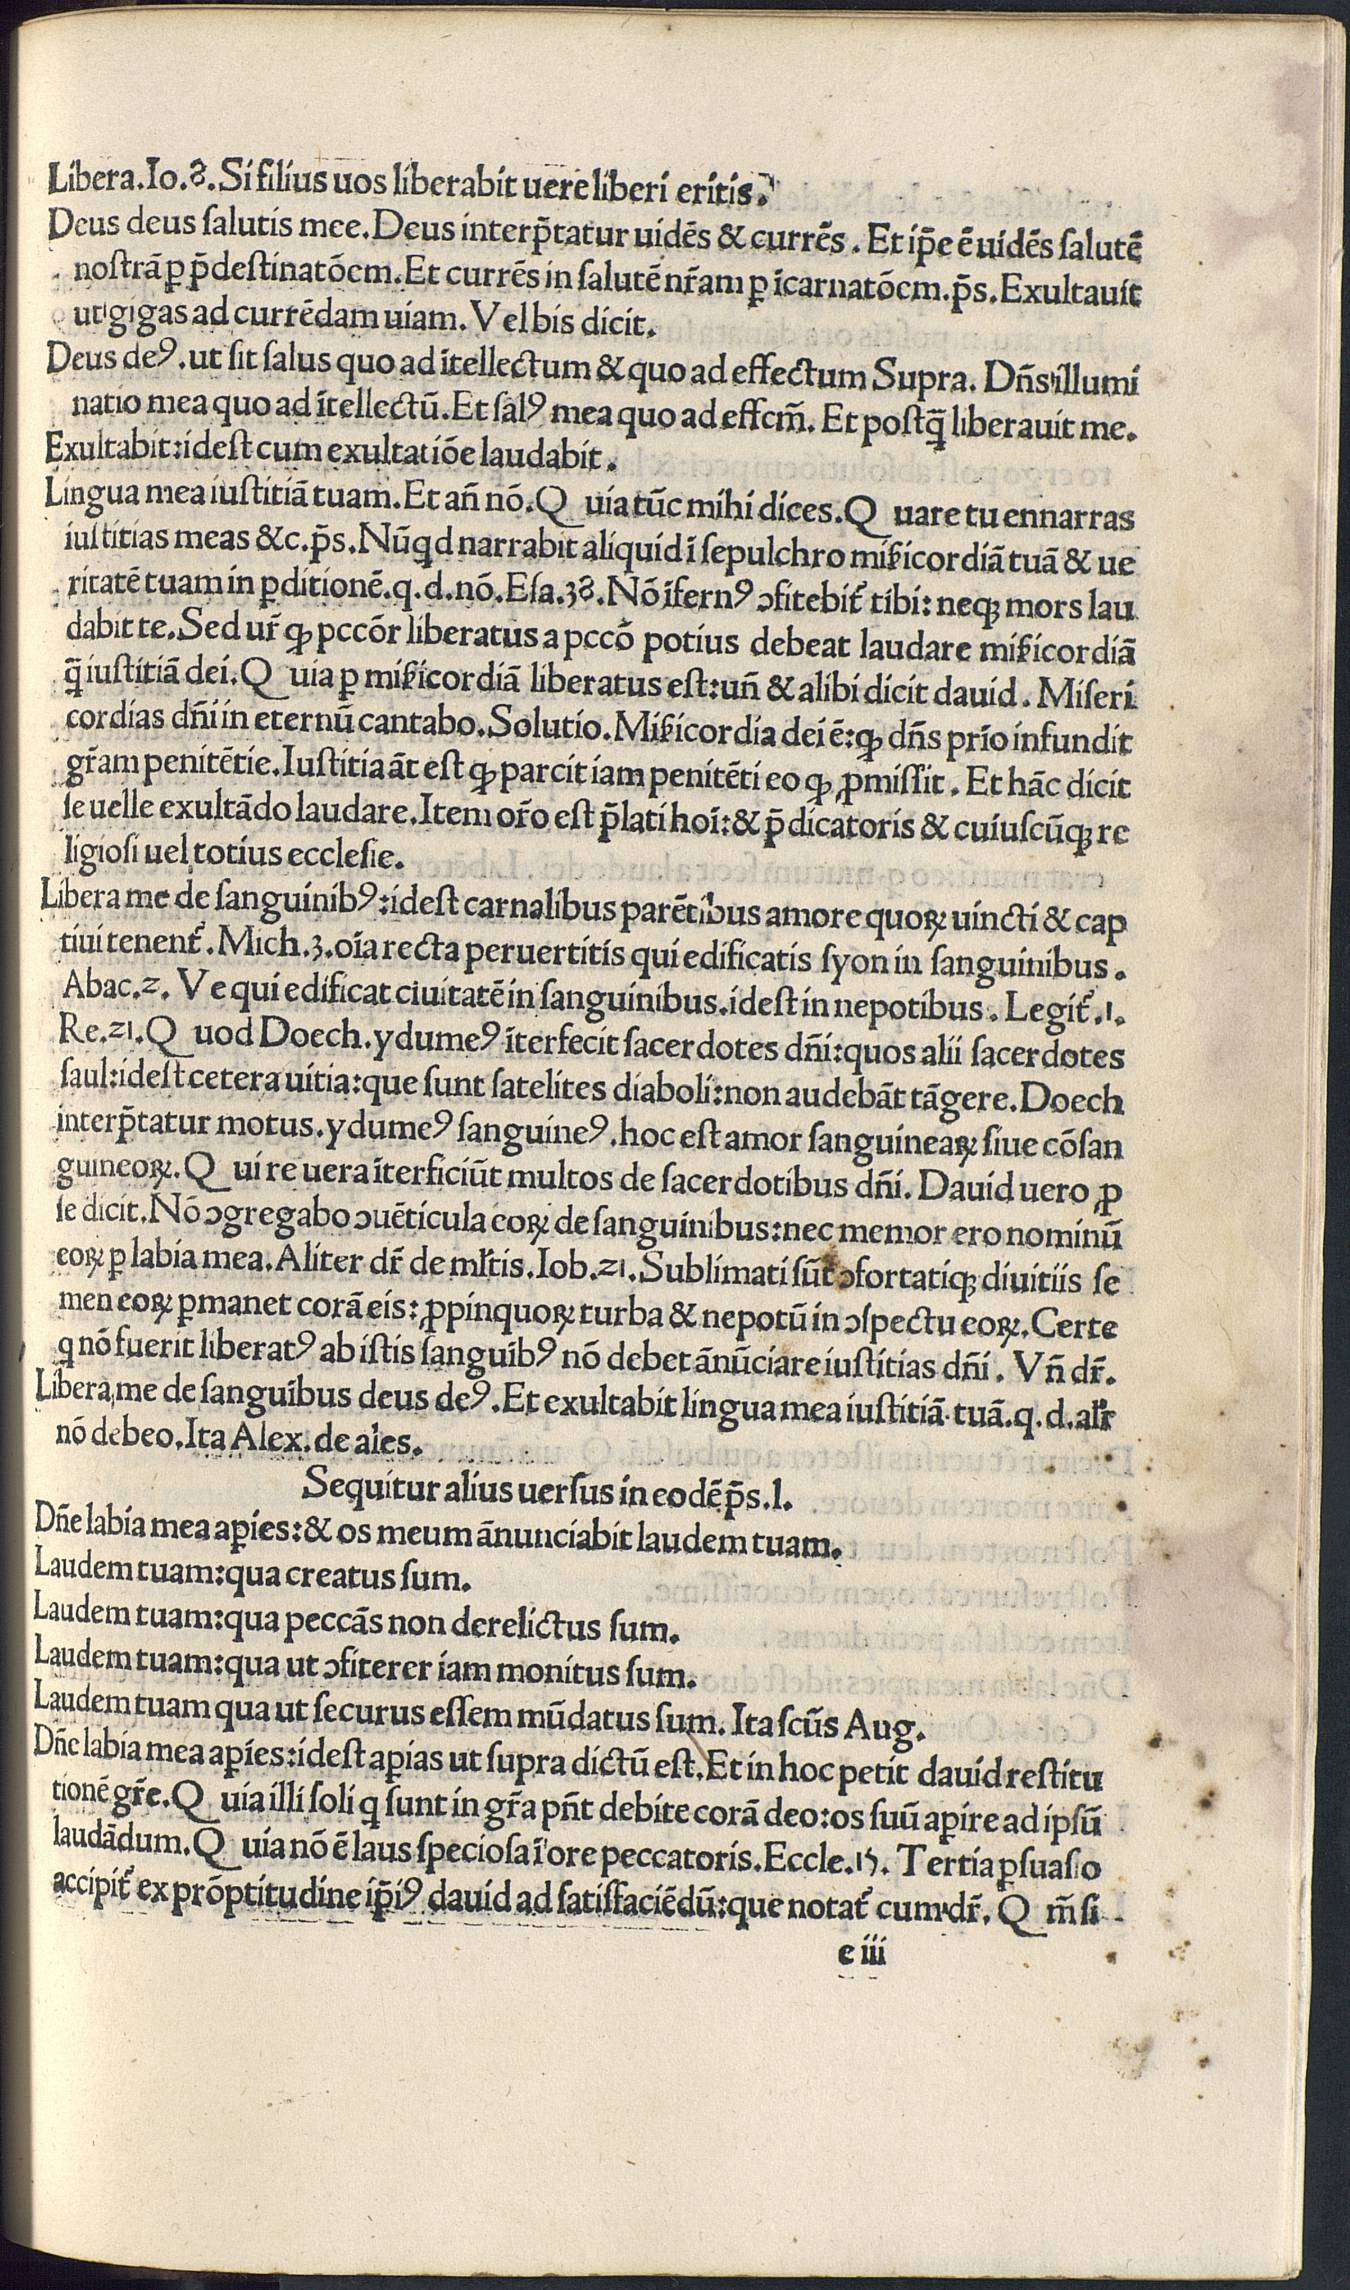 Libera.Io.8.Si filius uos liberabit uere liberi eritis.
Deus deus ſalutis mee.Deus interp̄tatur uidēs & currēs. Et ip̄e ē uidēs ſalutē
noſtrā ꝑ p̄deſtinatōem.Et currēs in ſalutē nr̄am ꝑ īcarnatōem.p̄s.Exultauit
ut gigas ad currēdam uiam. Vel bis dicit.
Deus deꝰ.ut ſit ſalus quo ad ītellectum & quo ad effectum Supra. Dn̄s illumi
natio mea quo ad ītellectū.Et ſalꝰ mea quo ad effcm̄. Et poſtq̄ liberauit me.
Exultabit:ideſt cum exultatiōe laudabit.
Lingua mea iuſtitiā tuam.Et an̄ nō.Q uia tūc mihi dices.Q uare tu ennarras
iuſtitias meas &c.p̄s.Nūqd narrabit aliquid ī ſepulchro mīſicordiā tuā & ue
ritatē tuam in ꝑditionē.q.d.nō.Eſa.38.Nō īfernꝰ ↄfitebit᷑ tibi: neqꝫ mors lau
dabit te.Sed ur̄ ꝙ pccōr liberatus a pccō potius debeat laudare mīſicordiā
q̄ iuſtitiā dei.Q uia ꝑ mīſicordiā liberatus eſt:un̄ & alibi dicit dauid. Miſeri
cordias dn̄i in eternū cantabo.Solutio.Mīſicordia dei ē:ꝙ dn̄s prīo infundit
gr̄am penitētie.Iuſtitia āt eſt ꝙ parcit iam penitēti eo ꝙ ꝓmiſſit. Et hāc dicit
ſe uelle exultādo laudare.Item or̄o eſt p̄lati hoī:& p̄dicatoris & cuiuſcūqꝫ re
ligioſi uel totius eccleſie.
Libera me de ſanguinibꝰ:ideſt carnalibus parētibus amore quoꝝ uincti & cap
tiui tenent᷑.Mich.3.oīa recta peruertitis qui edificatis ſyon in ſanguinibus.
Abac.2. Ve qui edificat ciuitatē in ſanguinibus.ideſt in nepotibus. Legit᷑.1.
Re.21.Q uod Doech.ydumeꝰ īterfecit ſacerdotes dn̄i:quos alii ſacerdotes
ſaul:ideſt cetera uitia:que ſunt ſatelites diaboli:non audebāt tāgere.Doech
interp̄tatur motus.ydumeꝰ ſanguineꝰ.hoc eſt amor ſanguineaꝝ ſiue cōſan
guineoꝝ.Q ui re uera īterficiūt multos de ſacerdotibus dn̄i. Dauid uero ꝓ
ſe dicit.Nō ↄgregabo ↄuēticula eoꝝ de ſanguinibus:nec memor ero nominū
eoꝝ ꝑ labia mea.Aliter dr̄ de ml̄tis.Iob.21.Sublimati ſūt ↄfortatiqꝫ diuitiis ſe
men eoꝝ ꝑmanet corā eis: ꝓpinquoꝝ turba & nepotū in ↄſpectu eoꝝ.Certe
q nō fuerit liberatꝰ ab iſtis ſanguībꝰ nō debet ānūciare iuſtitias dn̄i. Vn̄ dr̄.
Libera me de ſanguībus deus deꝰ.Et exultabit lingua mea iuſtitiā tuā.q.d.alr̄
nō debeo.Ita Alex.de ales.
Sequitur alius uerſus in eodē p̄s.l.
Dn̄e labia mea aꝑies:& os meum ānunciabit laudem tuam.
Laudem tuam:qua creatus ſum.
Laudem tuam:qua peccās non derelictus ſum.
Laudem tuam:qua ut ↄfiterer iam monitus ſum.
Laudem tuam qua ut ſecurus eſſem mūdatus ſum. Ita ſcūs Aug.
Dn̄e labia mea aꝑies:ideſt aꝑias ut ſupra dictū eſt.Et in hoc petit dauid reſtitu
tionē gr̄e.Q uia illi ſoli q ſunt in gr̄a pn̄t debite corā deo:os ſuū aꝑire ad ipſū
laudādum.Q uia nō ē laus ſpecioſa ī ore peccatoris.Eccle.15. Tertia ꝑſuaſio
accipit᷑ ex prōptitudine ip̄iꝰ dauid ad ſatiſfaciēdū:que notat᷑ cum dr̄. Q m̄ ſi
e iii